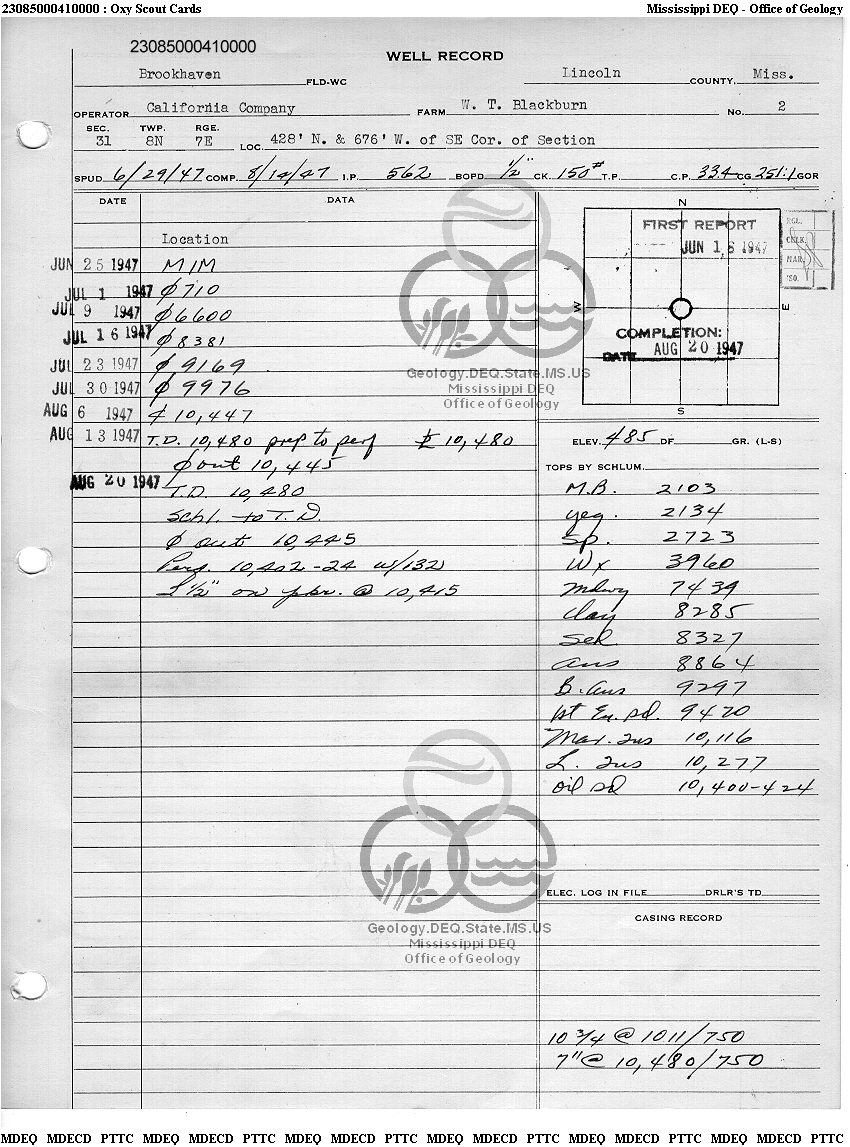 23085000410000 : Oxy Scout Cards Mississippi DEQ - Office of Geology
23085000410000
WELL RECORD
Brookhaven FLD-WC Lincoln COUNTY, Miss.
OPERATOR California Company FARM W. T. Blackburn No. 2
SEC. TWP. RGE.
31 8N 7E LOC. 428' N. & 676' W. of SE Cor. of Section
SPUD 6/29/47 COMP. 8/14/47 I.P. 562 BOPD 1/2" CK. 150# T.P. C.P. 33.4 CG 251:1 GOR
DATE DATA
Location
JUN 25 1947 MIM
JUL 1 1947 ϕ 710
JUL 9 1947 ϕ 6600
JUL 16 1947 ϕ 8381
JUL 23 1947 ϕ 9169
JUL 30 1947 ϕ 9976
AUG 6 1947 ϕ 10,447
AUG 13 1947 T.D. 10,480 prep to perf 10,480
ϕ out 10,445
AUG 20 1947 T.D. 10,480
Schl. to T.D.
ϕ out 10,445
Perf. 10,402-24 w/132
2 1/2" on pkr. @ 10,415
N
FIRST REPORT
JUN 16 1947
W E
COMPLETION:
DATE AUG 20 1947
S
REG.
CHLK.
MAR.
'SO.
ELEV. 485 DF GR. (L-S)
TOPS BY SCHLUM.
M.B. 2103
Yeg. 2134
Sp. 2723
Wx 3960
Mdwy 7439
Clay 8285
Sel 8327
Aus 8864
B. Aus 9297
1st Eu. sd. 9420
Mar. Tus 10,116
L. Tus 10,277
oil sd 10,400-424
ELEC. LOG IN FILE DRLR'S TD
CASING RECORD
10 3/4 @ 1011/750
7" @ 10,480/750
Geology.DEQ.State.MS.US
Mississippi DEQ
Office of Geology
Geology.DEQ.State.MS.US
Mississippi DEQ
Office of Geology
MDEQ MDECD PTTC MDEQ MDECD PTTC MDEQ MDECD PTTC MDEQ MDECD PTTC MDEQ MDECD PTTC MDEQ MDECD PTTC